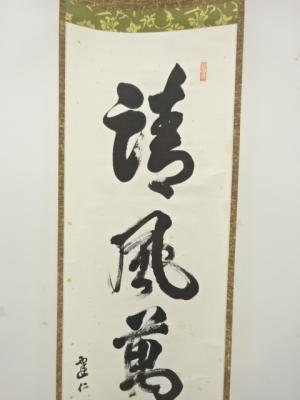 清風萬
建仁